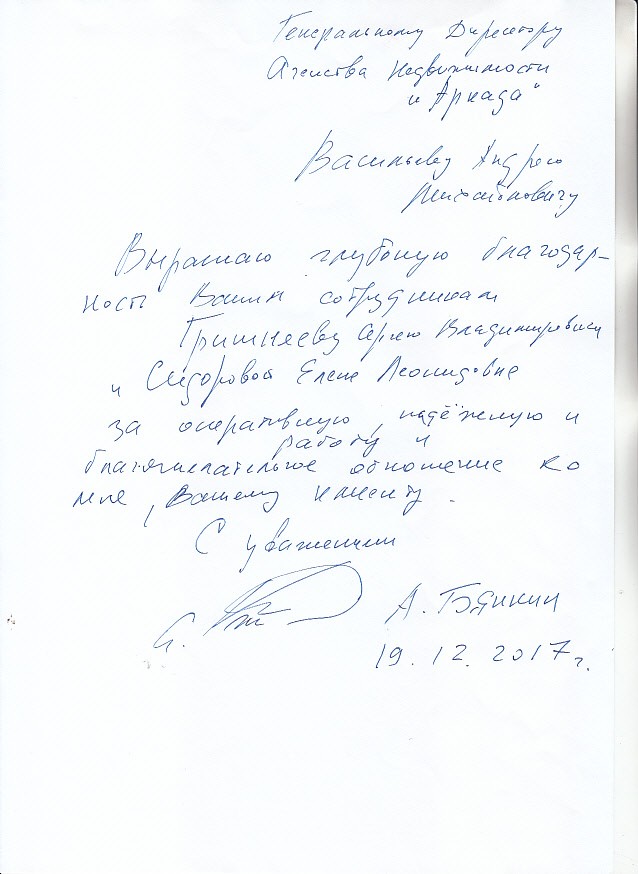 Генеральному Директору
Агенства Недвижимости
"Аркада"
Васильеву Андрею
Михайловичу
Выражаю глубокую благодар-
ность Вашим сотрудникам
Сергею Владимировичу
и Сидоровой Елене Леонидовне
за оперативную, надёжную и
работу и
благожелательное отношение ко
мне, Вашему клиенту.
С уважением
А.
19.12.2017г.